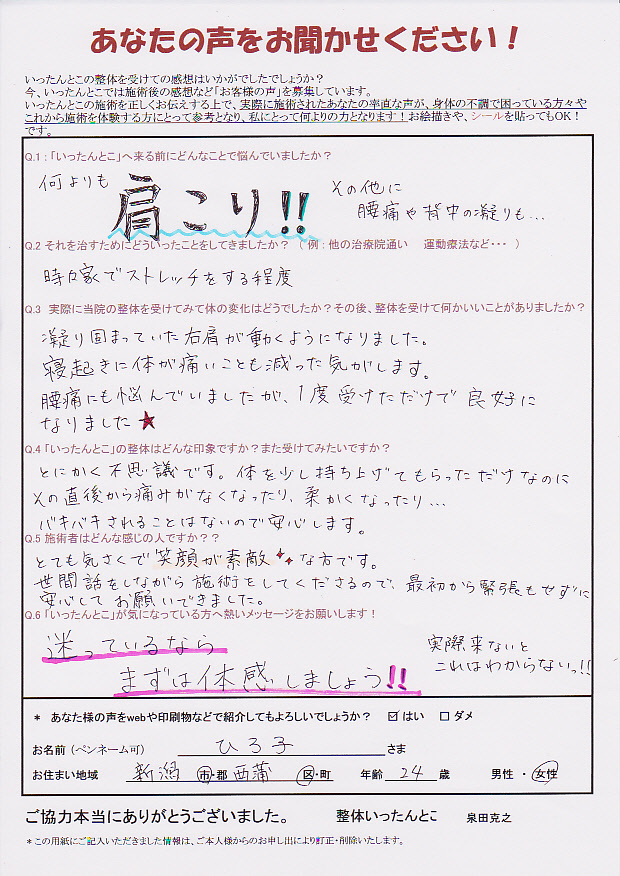 あなたの声をお聞かせください！
いったんとこの整体を受けての感想はいかがでしたでしょうか？
今、いったんとこでは施術後の感想など「お客様の声」を募集しています。
いったんとこの施術を正しくお伝えする上で、実際に施術されたあなたの率直な声が、身体の不調で困っている方々や
これから施術を体験する方にとって参考となり、私にとって何よりの力となります！お絵描きや、シールを貼ってもOK！
です。
Q.1：「いったんとこ」へ来る前にどんなことで悩んでいましたか？
何よりも 肩こり!! その他に
腰痛や背中の凝りも...
Q.2 それを治すためにどういったことをしてきましたか？（ 例：他の治療院通い　運動療法など・・・ ）
時々家でストレッチをする程度
Q.3　実際に当院の整体を受けてみて体の変化はどうでしたか？その後、整体を受けて何かいいことがありましたか？
凝り固まっていた右肩が動くようになりました。
寝起きに体が痛いことも減った気がします。
腰痛にも悩んでいましたが、1度受けただけで良好に
なりました★
Q.4「いったんとこ」の整体はどんな印象ですか？また受けてみたいですか？
とにかく不思議です。体を少し持ち上げてもらっただけなのに
その直後から痛みがなくなったり、柔かくなったり...
バキバキされることはないので安心します。
Q.5 施術者はどんな感じの人ですか？？
とても気さくで笑顔が素敵な方です。
世間話をしながら施術をしてくださるので、最初から緊張もせずに
安心してお願いできました。
Q.6「いったんとこ」が気になっている方へ熱いメッセージをお願いします！
迷っているなら
まずは体感しましょう!!
実際来ないと
これはわからないっ!!
＊ あなた様の声をwebや印刷物などで紹介してもよろしいでしょうか？　☑はい　□ダメ
お名前（ペンネーム可） ひろ子 さま
お住まい地域 新潟 市・郡 西蒲 区・町 年齢 24 歳 男性・女性
ご協力本当にありがとうございました。 整体いったんとこ 泉田克之
＊この用紙にご記入いただきました情報は、ご本人様からのお申し出により訂正・削除いたします。